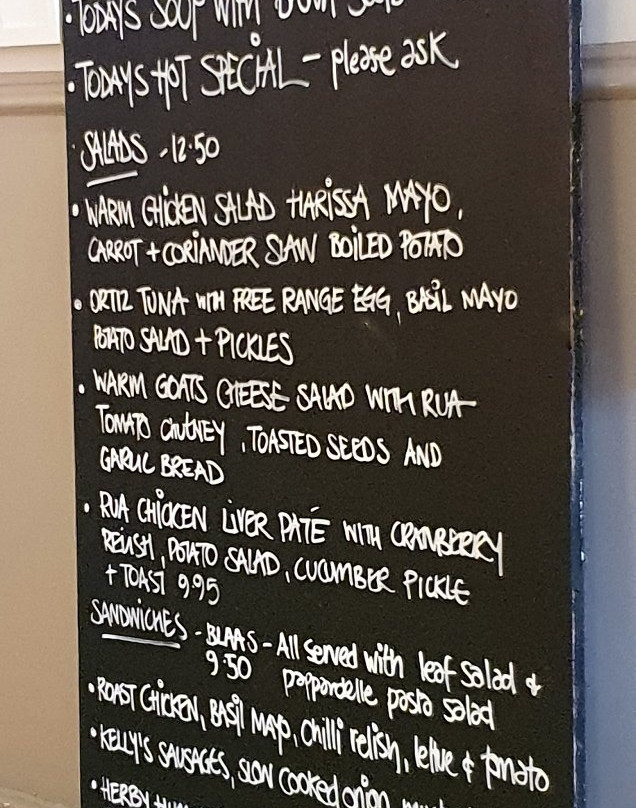 • TODAYS SOUP WITH
• TODAYS HOT SPECIAL - please ask
• SALADS - 12.50
• WARM CHICKEN SALAD HARISSA MAYO,
CARROT + CORIANDER SLAW BOILED POTATO
• ORTIZ TUNA WITH FREE RANGE EGG, BASIL MAYO
POTATO SALAD + PICKLES
• WARM GOATS CHEESE SALAD WITH RUA
TOMATO CHUTNEY, TOASTED SEEDS AND
GARLIC BREAD
• RUA CHICKEN LIVER PATÉ WITH CRANBERRY
RELISH, POTATO SALAD, CUCUMBER PICKLE
+ TOAST 9.95
SANDWICHES - BLAAS - All served with leaf salad &
9.50 pappardelle pasta salad
• ROAST CHICKEN, BASIL MAYO, chilli relish, lettuce & tomato
• KELLY'S SAUSAGES, SLOW cooked onion
• HERBY